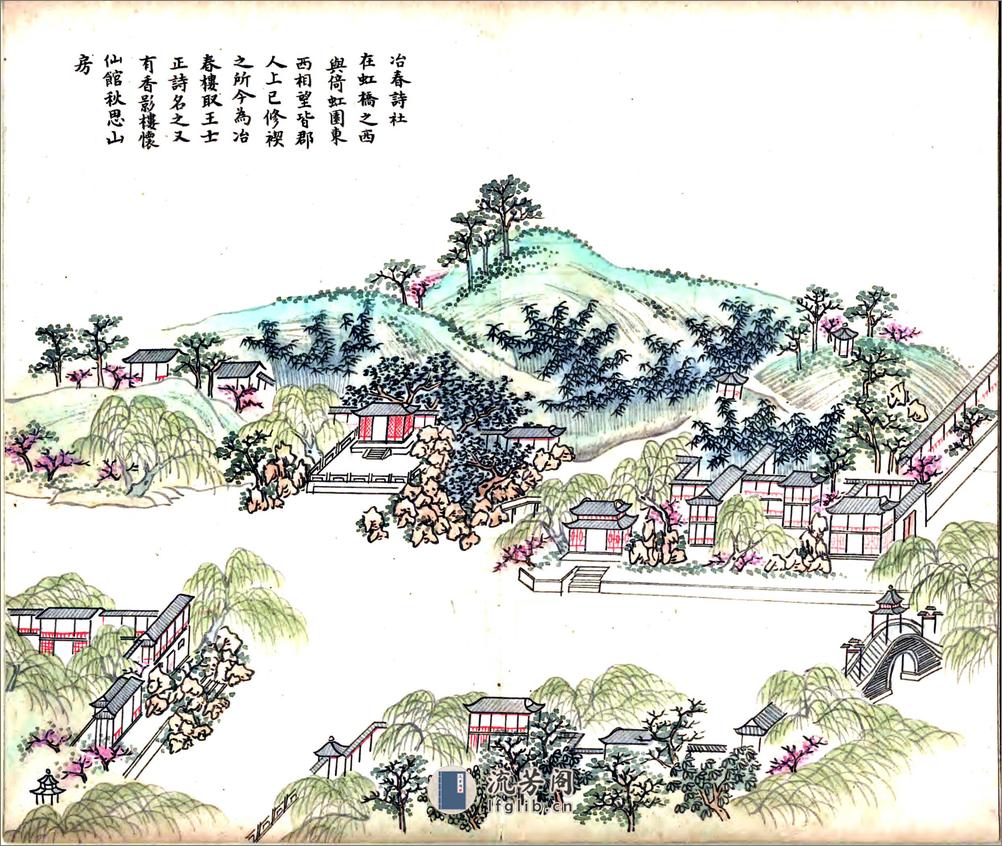 冶春詩社
在虹橋之西
與倚虹園東
西相望皆郡
人上巳修禊
之所今為冶
春樓取王士
正詩名之又
有香影樓懷
仙館秋思山
房
流芳阁
lfglib.cn